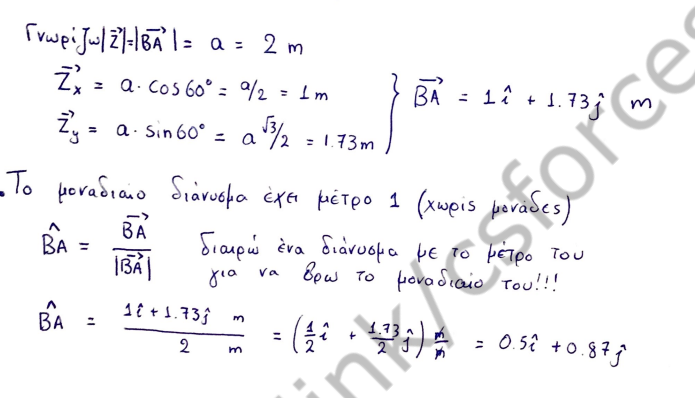 Γνωρίζω |Z⃗|=|BA⃗| = a = 2 m
Z⃗x = a·cos60° = a/2 = 1m
Z⃗y = a·sin60° = a√3/2 = 1.73m } BA⃗ = 1î + 1.73ĵ m
.Το μοναδιαίο διάνυσμα έχει μέτρο 1 (χωρίς μονάδες)
B̂A = BA⃗/|BA⃗| διαιρώ ένα διάνυσμα με το μέτρο του
για να βρω το μοναδιαίο του!!!
B̂A = (1î + 1.73ĵ m)/(2 m) = (1/2 î + 1.73/2 ĵ) m/m = 0.5î + 0.87ĵ
link/csforces